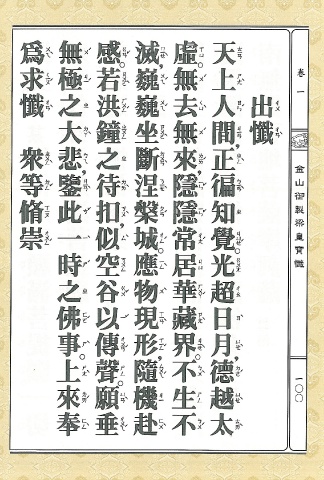 卷一
金山御製梁皇寶懺
一〇〇
出懺
天上人間,正徧知覺。光超日月,德越太
虛。無去無來,隱隱常居華藏界。不生不
滅,巍巍坐斷涅槃城。應物現形,隨機赴
感。若洪鐘之待扣,似空谷以傳聲。願垂
無極之大悲,鑒此一時之佛事。上來奉
爲求懺 眾等脩崇